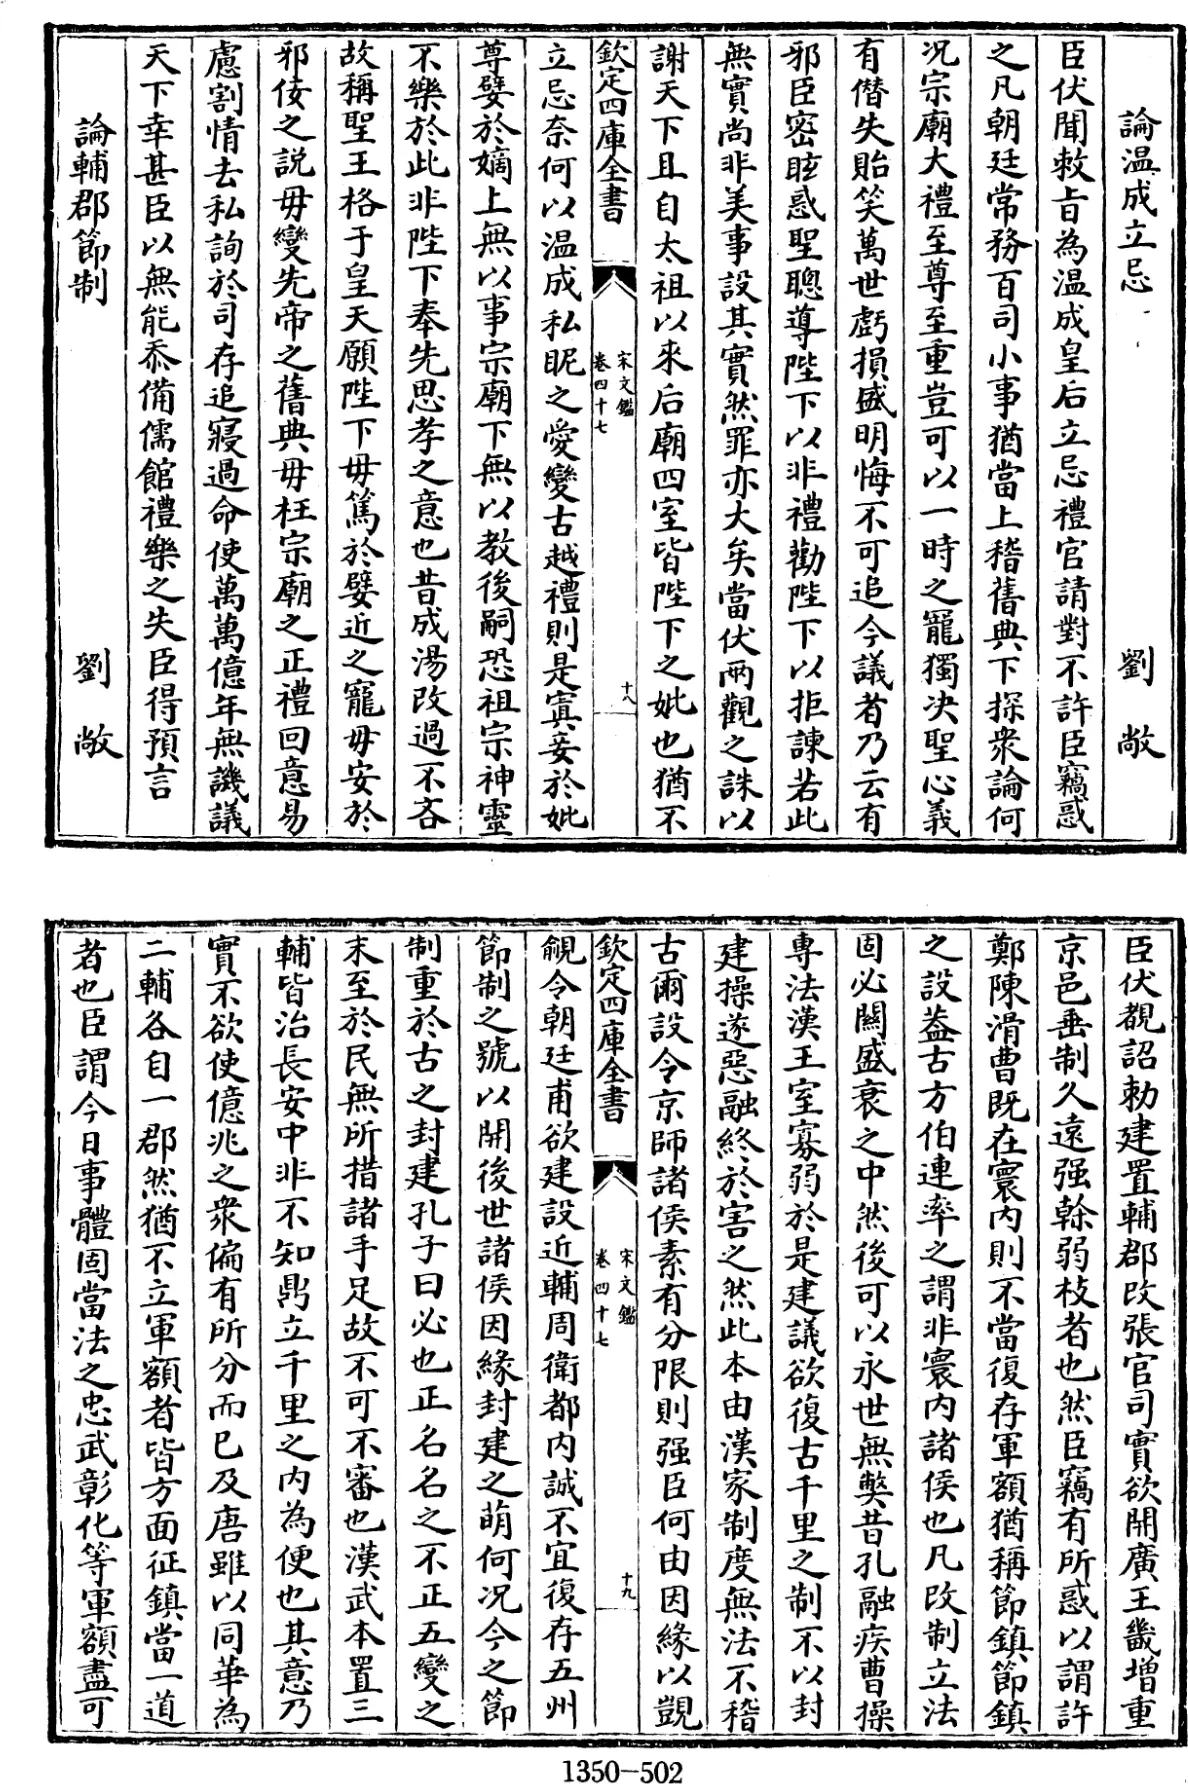 論温成立忌　劉敞
臣伏聞敕旨為温成皇后立忌禮官請對不許臣竊惑
之凡朝廷常務百司小事猶當上稽舊典下採衆論何
况宗廟大禮至尊至重豈可以一時之寵獨决聖心義
有僭失貽笑萬世虧損盛明悔不可追今議者乃云有
邪臣密眩惑聖聰導陛下以非禮勸陛下以拒諫若此
無實尚非美事設其實然罪亦大矣當伏兩觀之誅以
謝天下且自太祖以來后廟四室皆陛下之妣也猶不
欽定四庫全書
宋文鑑
卷四十七
十八
立忌奈何以温成私昵之愛變古越禮則是寘妾於妣
尊嬖於嫡上無以事宗廟下無以教後嗣恐祖宗神靈
不樂於此非陛下奉先思孝之意也昔成湯改過不吝
故稱聖王格于皇天願陛下毋篤於嬖近之寵毋安於
邪佞之説毋變先帝之舊典毋枉宗廟之正禮回意易
慮割情去私詢於司存追寢過命使萬萬億年無譏議
天下幸甚臣以無能忝備儒館禮樂之失臣得預言
論輔郡節制　劉敞
臣伏覩詔勅建置輔郡改張官司實欲開廣王畿增重
京邑垂制久遠强幹弱枝者也然臣竊有所惑以謂許
鄭陳滑曹既在寰内則不當復存軍額猶稱節鎮節鎮
之設葢古方伯連率之謂非寰内諸侯也凡改制立法
固必關盛衰之中然後可以永世無獘昔孔融疾曹操
專法漢王室寡弱於是建議欲復古千里之制不以封
建操遂惡融終於害之然此本由漢家制度無法不稽
古爾設令京師諸侯素有分限則强臣何由因緣以覬
欽定四庫全書
宋文鑑
卷四十七
十九
覦今朝廷甫欲建設近輔周衛都内誠不宜復存五州
節制之號以開後世諸侯因緣封建之萌何况今之節
制重於古之封建孔子曰必也正名名之不正五變之
末至於民無所措諸手足故不可不審也漢武本置三
輔皆治長安中非不知鼎立千里之内為便也其意乃
實不欲使億兆之衆偏有所分而已及唐雖以同華為
二輔各自一郡然猶不立軍額者皆方面征鎮當一道
者也臣謂今日事體固當法之忠武彰化等軍額盡可
1350-502